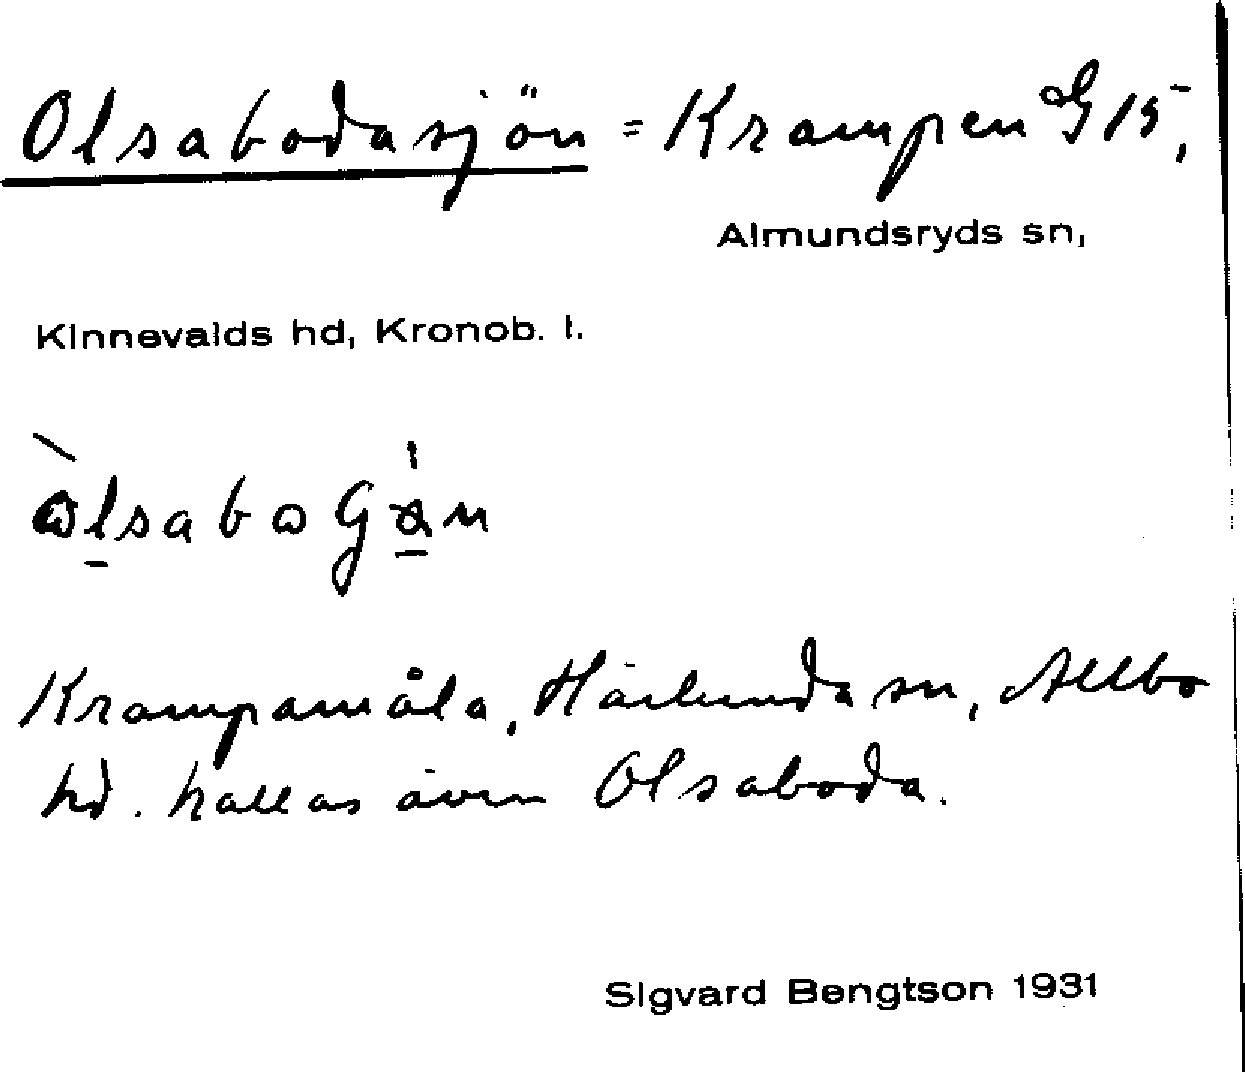 Olsabodasjön = Krampen G 15,
Almundsryds sn,
Kinnevalds hd, Kronob. l.
Krampamåla, Härlunda sn, Allbo
hd. kallas även Olsaboda.
Sigvard Bengtson 1931